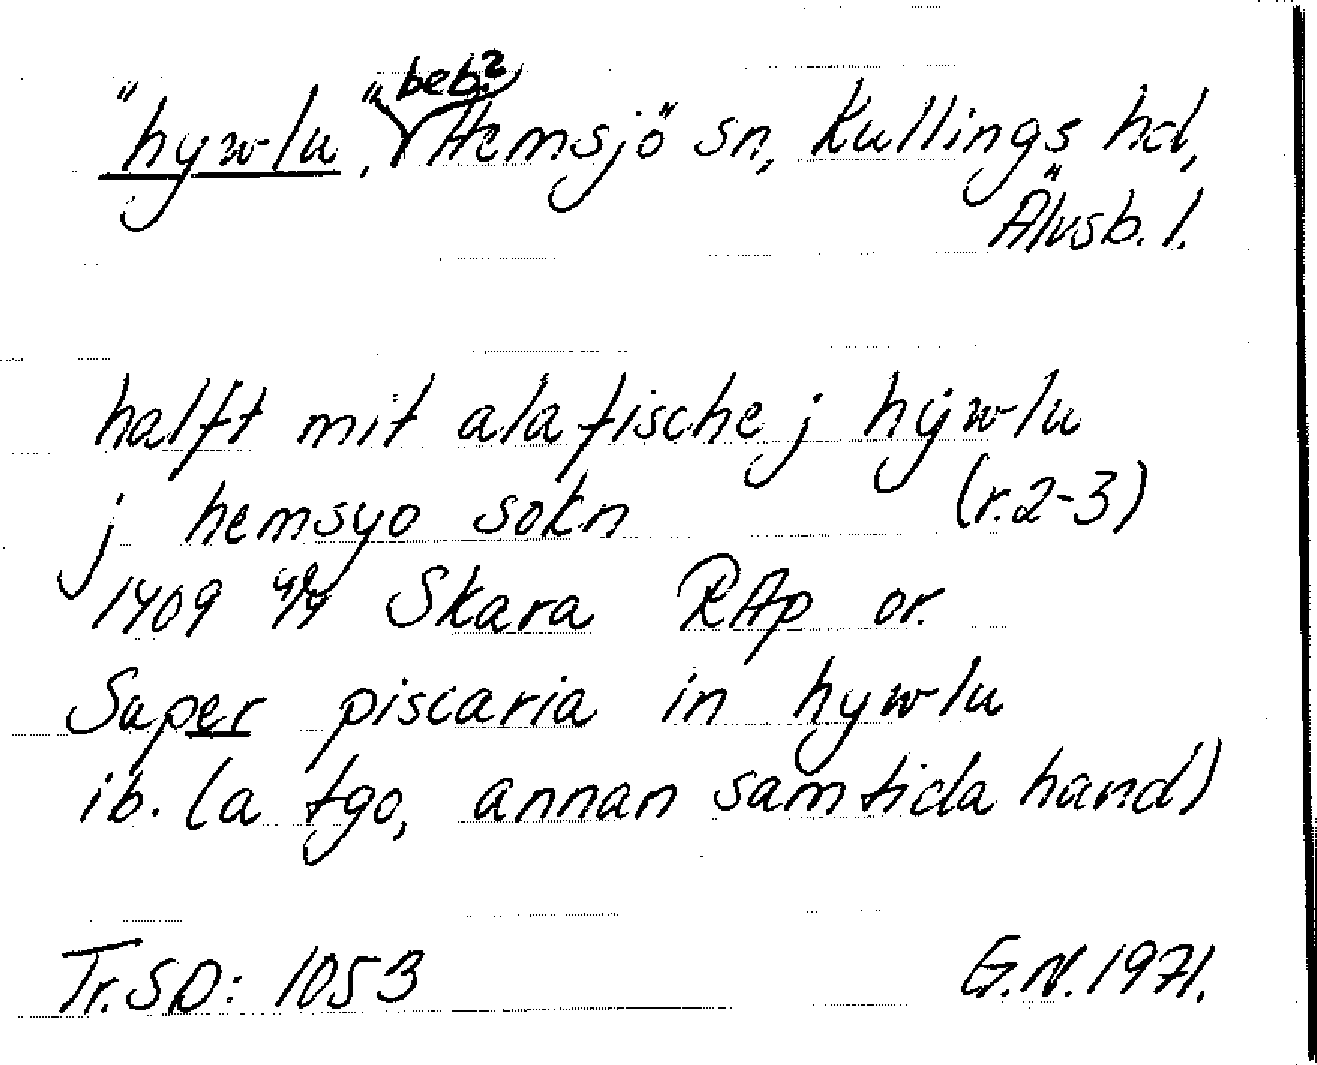 "hywlu", beb? Hemsjö sn, Kullings hd,
Älvsb. l.
halft mit alafische j hÿwlu
j hemsyo sokn (r.2-3)
1409 4/9 Skara RAp or.
Super piscaria in hywlu
ib. (a tgo, annan samtida hand)
Tr. SD: 1053 G.N. 1971.